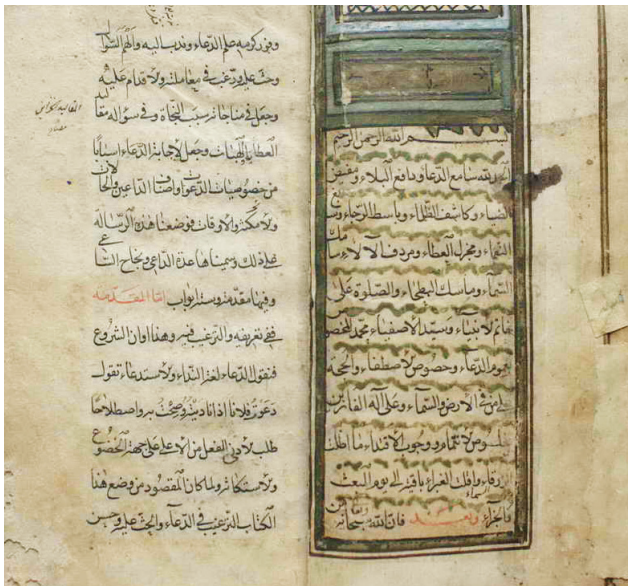 بسم الله الرحمن الرحيم
الحمد لله سامع الدعاء ودافع البلاء ومفيض
الضياء وكاشف الظلماء وباسط الرجاء وسابغ
النعماء ومجزل العطاء ومردف الآلاء سامك
السماء وماسك البطحاء والصلوة على
خاتم الانبياء وسيد الاصفياء محمد المخصوص
بعموم الدعاء وخصوص الاصطفاء والحجة
على من في الارض والسماء وعلى آله الفائزين
بخلوص الانتماء ووجوب الاقتداء ما اظلت
الزرقاء واقلت الغبراء باقية الى يوم البعث
والجزاء وبعد فان الله سبحانه
وفور كرمه علم الدعاء وندب اليه والهم السؤال
وحث عليه ورغب في معاملته والاقدام عليه
وجعل في مناجاته سبب النجاة وفي سؤاله مقاليد
العطايا والهبات وجعل لاجابة الدعاء اسبابا
من خصوصيات الدعوات واصناف الداعين والحالات
والامكنة والاوقات فوضعنا هذه الرسالة
على ذلك وسميناها عدة الداعي ونجاح الساعي
وفيها مقدمة وستة ابواب اما المقدمة
ففي تعريفه والترغيب فيه وهذا اوان الشروع
فنقول الدعاء لغة النداء والاستدعاء تقول
دعوت فلانا اذا ناديته وصحت به واصطلاحا
طلب الادنى للفعل من الاعلى على جهة الخضوع
والاستكانة ولما كان المقصود من وضع هذا
الكتاب الترغيب في الدعاء والحث عليه وحسن